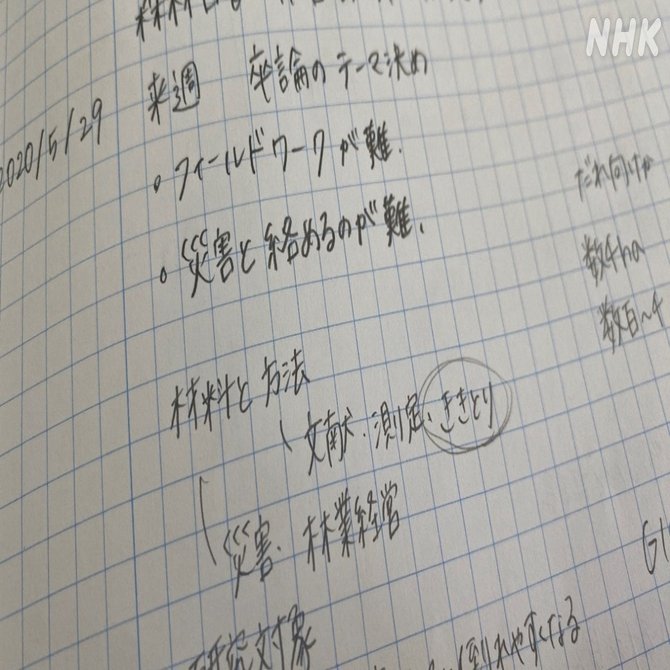 NHK
2020/5/29 来週 卒論のテーマ決め
・フィールドワークが難.
・災害と絡めるのが難.
だれ向けか
数千ha
数百〜千
材料と方法
文献・測定・ききとり
災害・林業経営
研究対象
倒れやすくなる